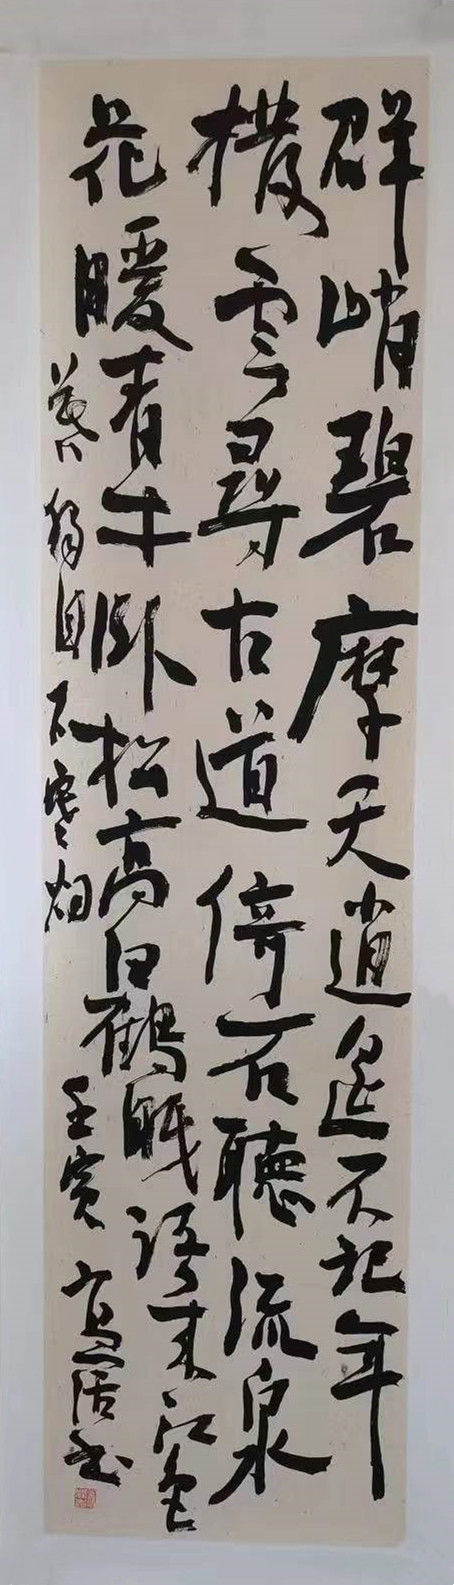 群峭碧摩天逍遥不記年
撥雲尋古道倚石聽流泉
花暖青牛卧松高白鶴眠語来江色
暮獨自下寒烟 壬寅 书